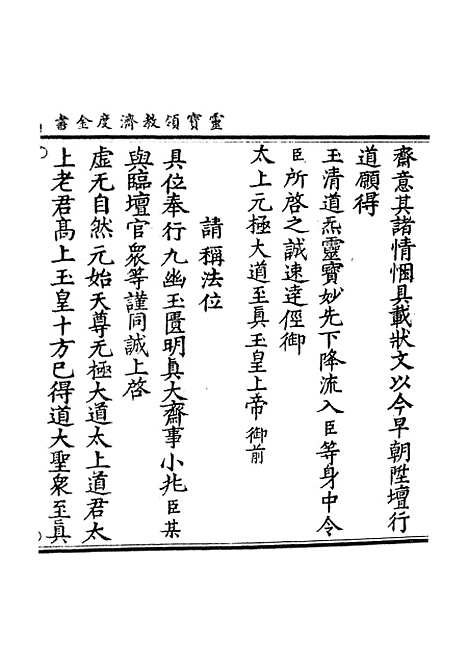 靈寳領教濟度金書
齋意其諸情悃具載狀文以今早朝陞壇行
道願得
玉清道炁靈寶妙先下降流入臣等身中令
臣所啓之誠速達徑御
太上元極大道至眞玉皇上帝御前
請稱法位
具位奉行九幽玉匱明眞大齋事小兆臣某
與臨壇官衆等謹同誠上啓
虛无自然元始天尊无極大道太上道君太
上老君髙上玉皇十方已得道大聖衆至眞